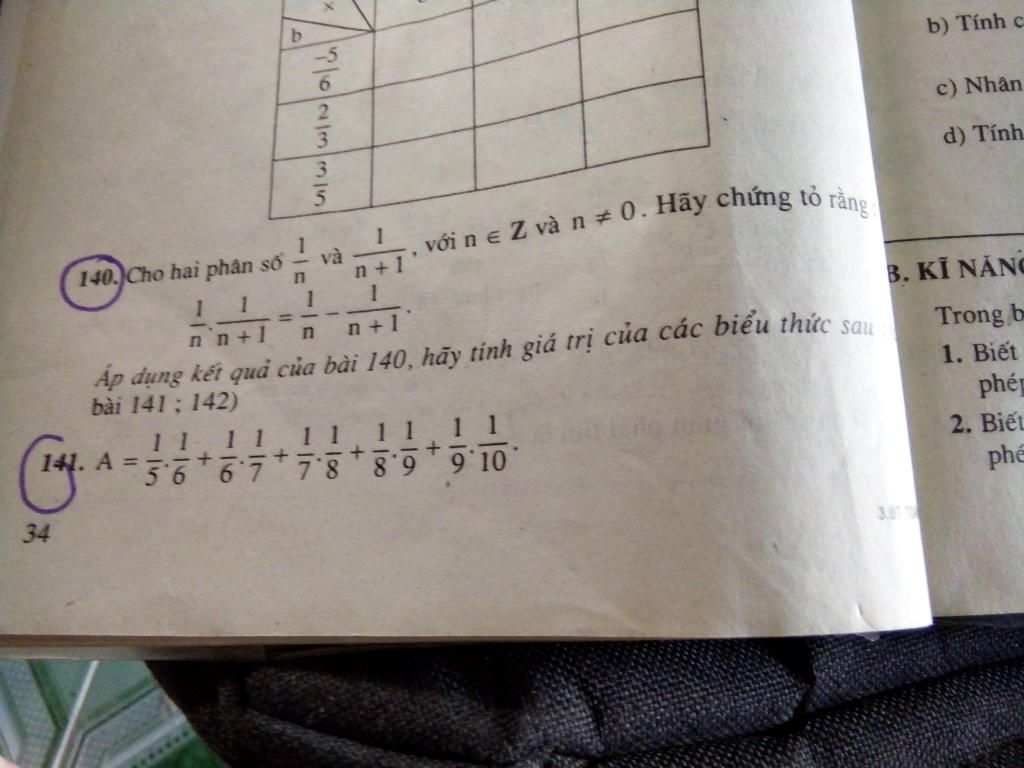 x
b
-5/6
2/3
3/5
140. Cho hai phân số 1/n và 1/(n + 1), với n ∈ Z và n ≠ 0. Hãy chứng tỏ rằng :
1/n . 1/(n + 1) = 1/n − 1/(n + 1).
Áp dụng kết quả của bài 140, hãy tính giá trị của các biểu thức sau
bài 141 ; 142)
141. A = 1/5 . 1/6 + 1/6 . 1/7 + 1/7 . 1/8 + 1/8 . 1/9 + 1/9 . 1/10.
34
b) Tính
c) Nhân
d) Tính
B. KĨ NĂNG
Trong
1. Biết
2. Biết